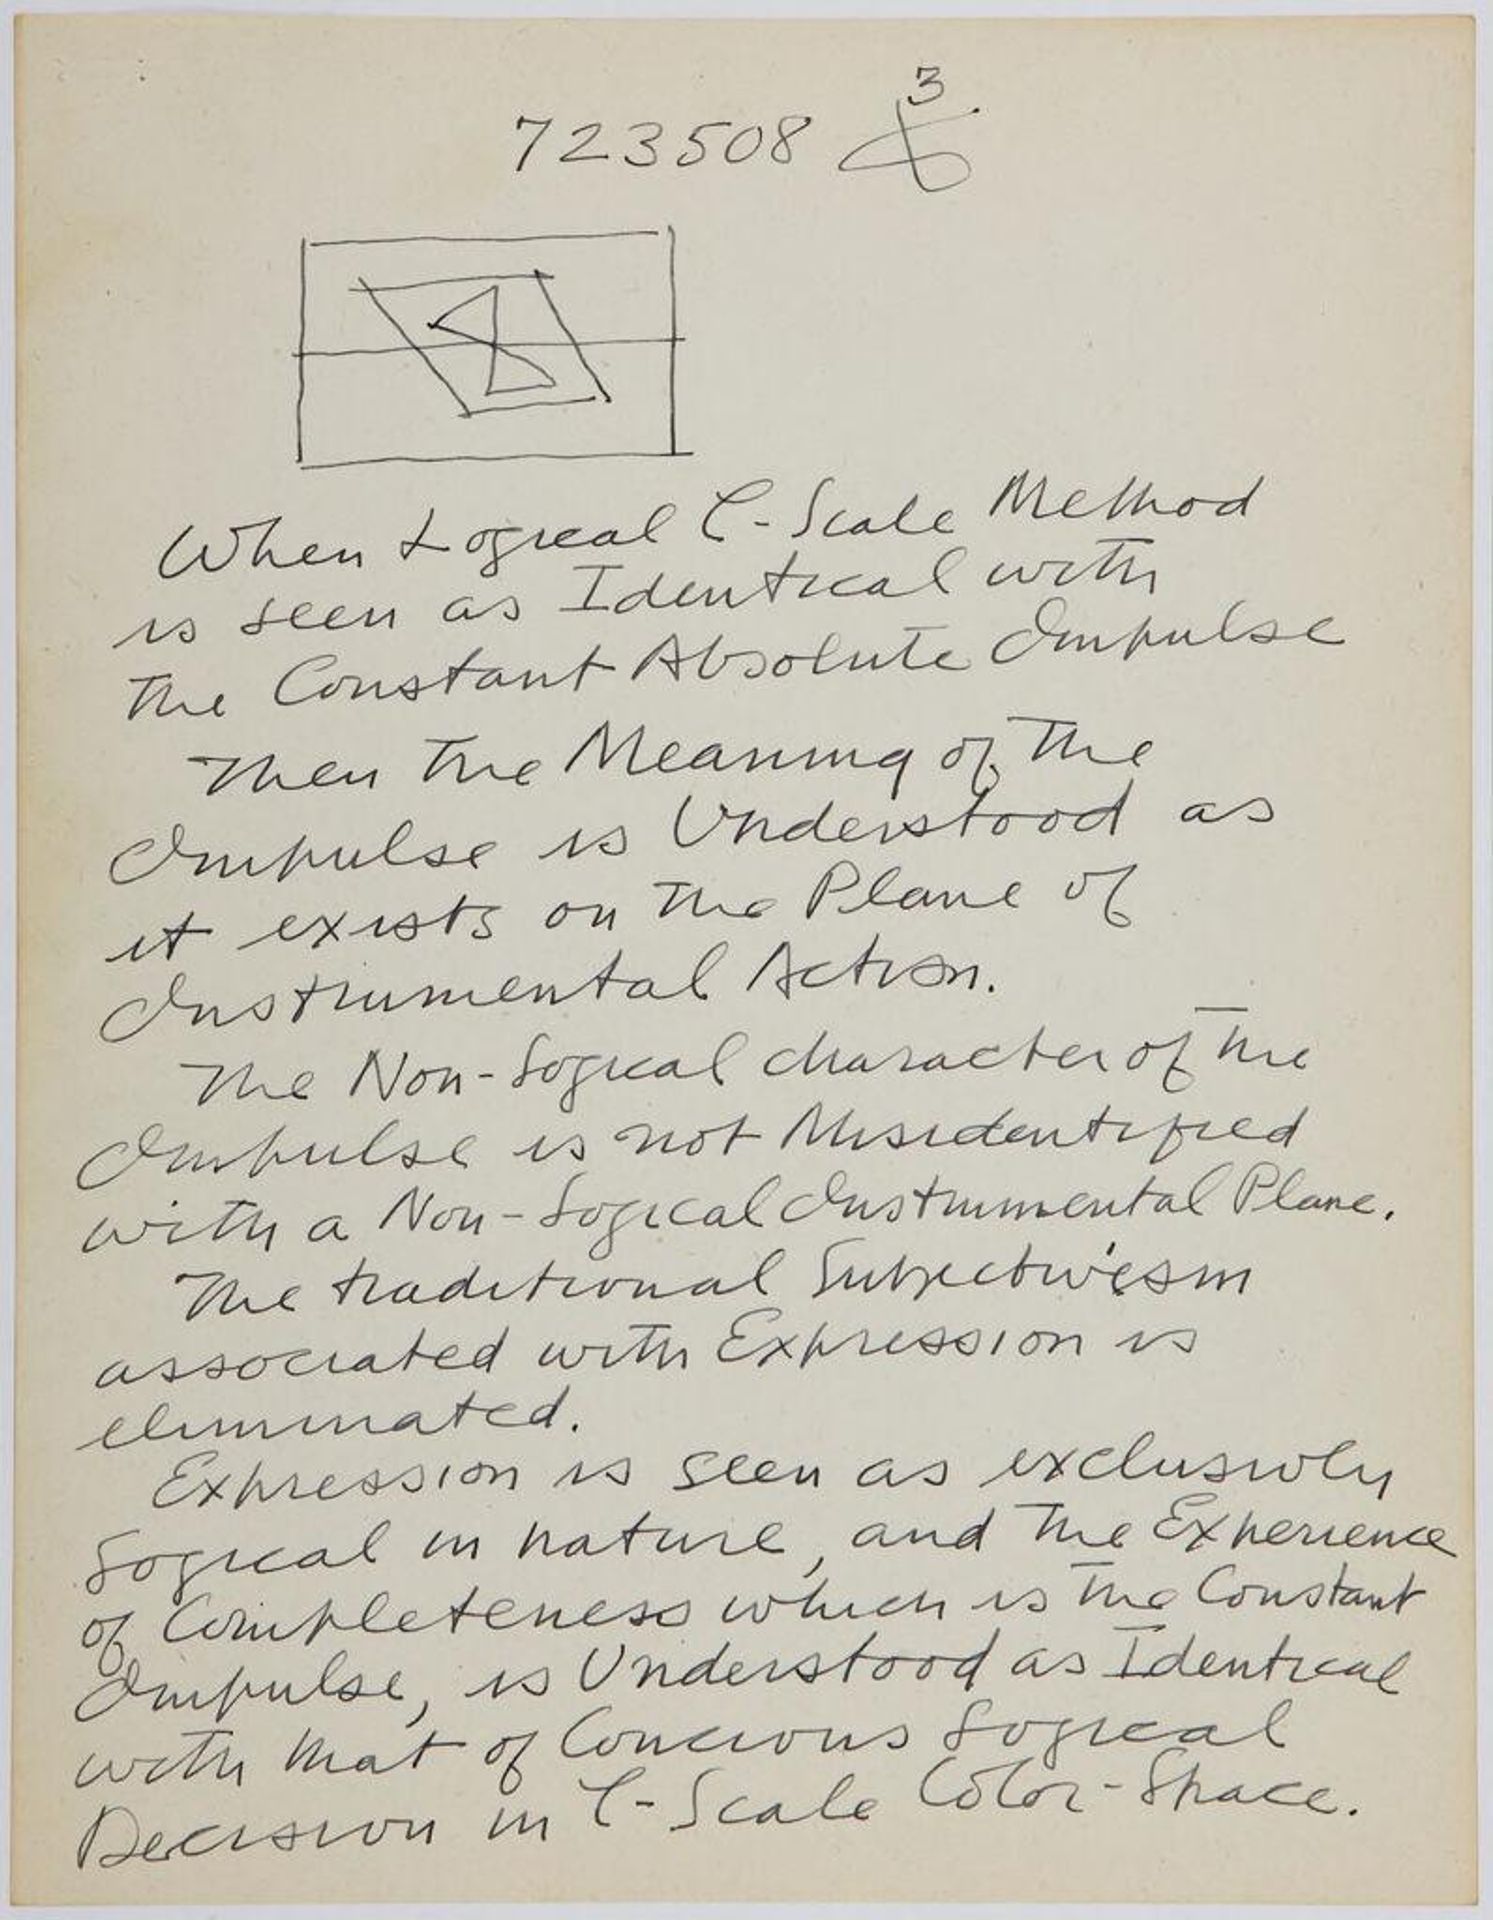 723508 3
When Logical C-Scale Method
is seen as Identical with
the Constant Absolute Impulse
Then the Meaning of the
Impulse is Understood as
it exists on the Plane of
Instrumental Action.
The Non-Logical character of the
Impulse is not Misidentified
with a Non-Logical Instrumental Plane.
The traditional Subjectivism
associated with Expression is
eliminated.
Expression is seen as exclusivly
Logical in nature, and the Experience
of Completeness which is the Constant
Impulse, is Understood as Identical
with that of Concious Logical
Decision in C-Scale Color-Space.